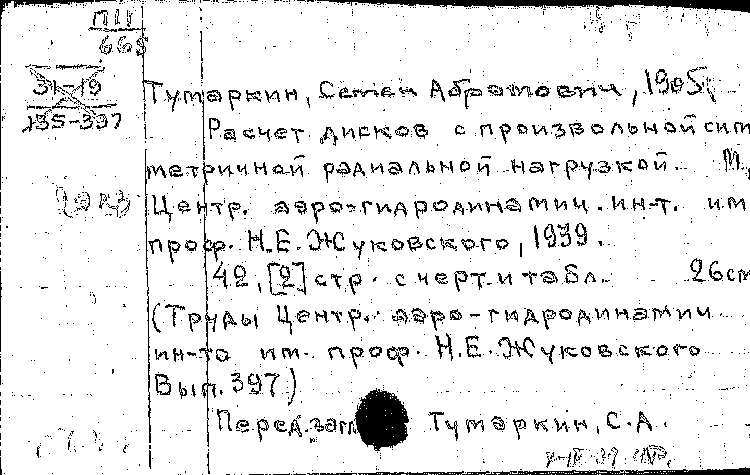 П11
665
31-19
135-397
Тумаркин, Семен Абрамович, 1905.
Расчет дисков с произвольной сим
метричной радиальной нагрузкой. М.,
Центр. аэро-гидродинамич. ин-т. им
проф. Н.Е. Жуковского, 1939.
42, [2] стр. с черт. и табл. 26 cm
(Труды Центр. аэро-гидродинамич
ин-та им. проф. Н.Е. Жуковского
Вып. 397)
Перед. заг. Тумаркин, С.А.